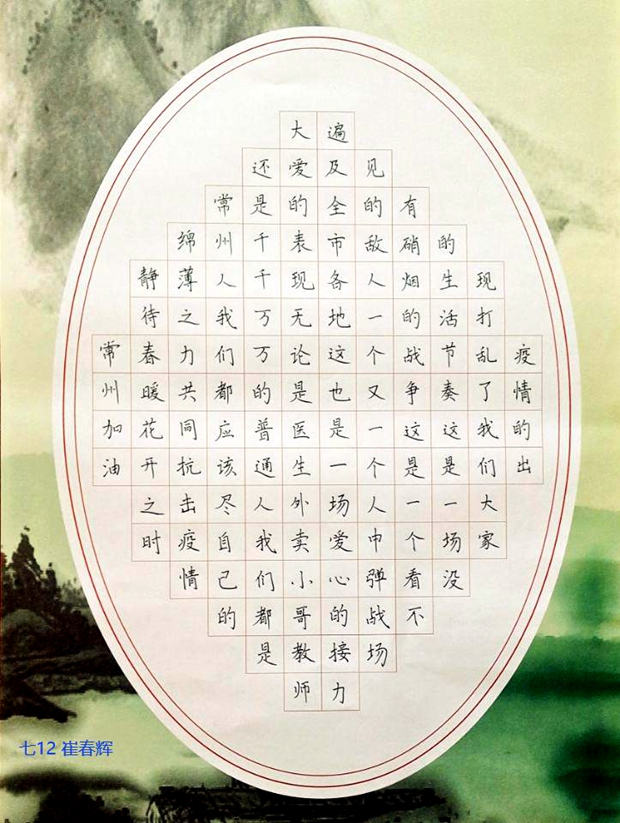 疫情的出
现打乱了我们大家
的生活节奏这是一场没
有硝烟的战争这是一个看不
见的敌人一个又一个人中弹战场
遍及全市各地这也是一场爱心的接力
大爱的表现无论是医生外卖小哥教师
还是千千万万的普通人我们都是
常州人我们都应该尽自己的
绵薄之力共同抗击疫情
静待春暖花开之时
常州加油
七12 崔春辉